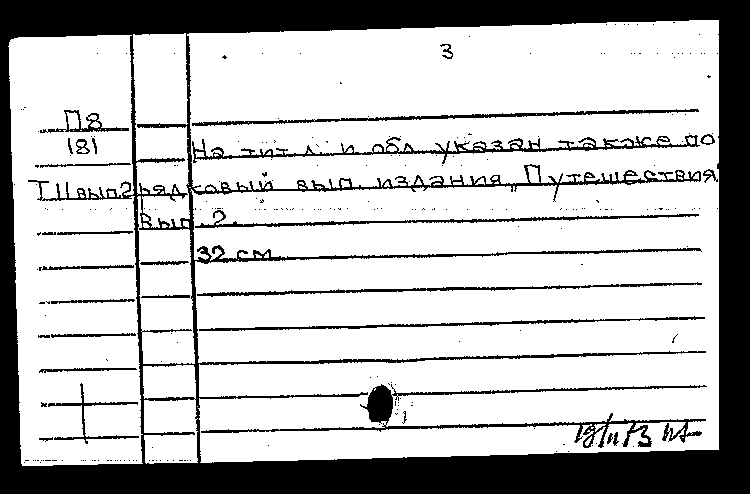 3
П8
181
На тит. л. и обл. указан также по
Т. II вып. 2 рядковый вып. издания „Путешествия"
Вып. 2.
32 см